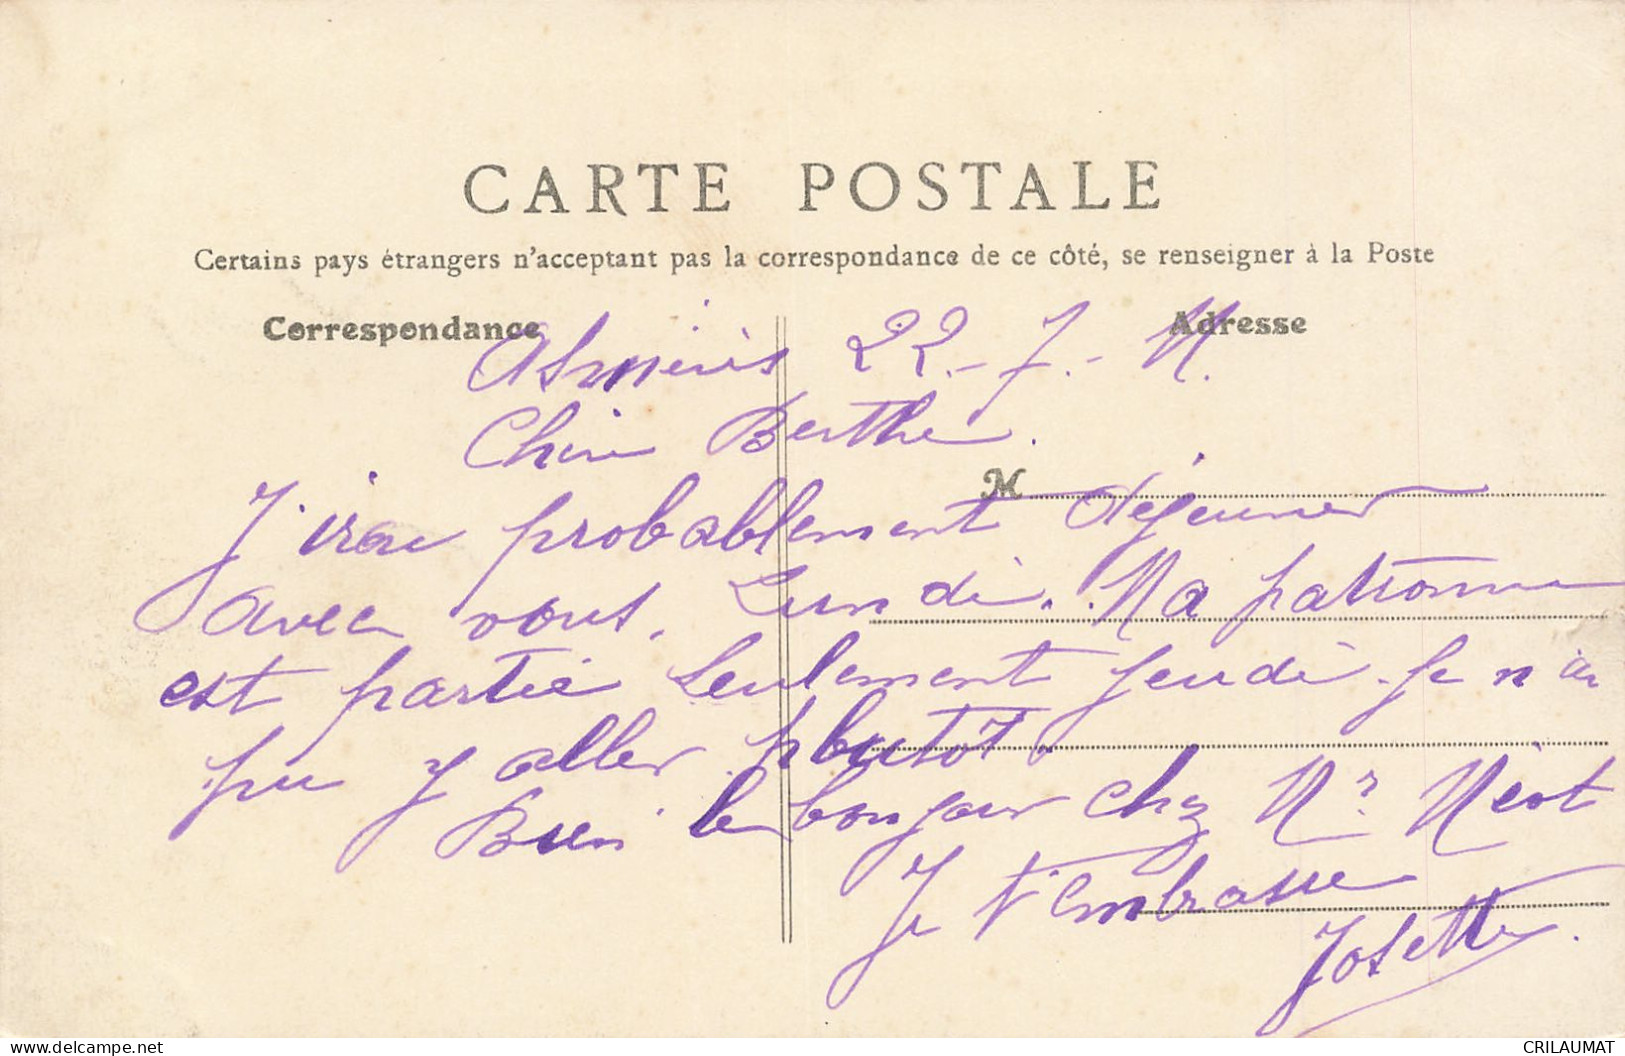 CARTE POSTALE
Certains pays étrangers n'acceptant pas la correspondance de ce côté, se renseigner à la Poste
Correspondance
Adresse
Asnières 22-7-11.
Chère Berthe.
M
J'irai probablement déjeuner
avec vous. Lundi. Ma patronne
est partie seulement jeudi. Je n'ai
pu y aller plutôt.
Bien le bonjour chez Mr
Je t'embrasse
Josette.
www.delcampe.net
CRILAUMAT